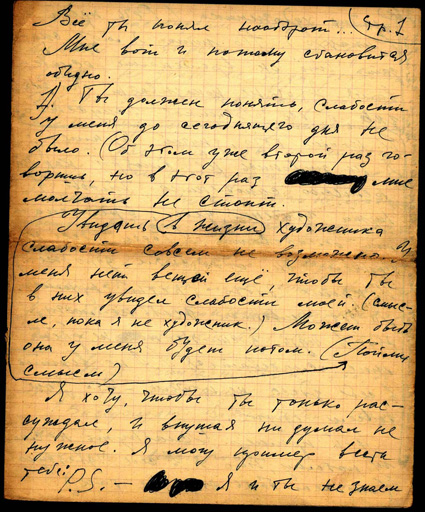 Всё ты понял наоборот... Стр. 1
Мне вот и потому становится
обидно.
1). Ты должен понять, слабости
у меня до сегодняшнего дня не
было. (Об этом уже второй раз го-
воришь, но в этот раз мне
молчать не стоит.
Увидать в жизни художника
слабости совсем не возможно. У
меня нет вещей ещё, чтобы ты
в них увидел слабости моей. (смыс-
ле, пока я не художник.) Может быть
она у меня будет потом. (Пойми
смысл)
Я хочу, чтобы ты только рас-
суждал, и внушая ни думал не
нужное. Я могу пример вести
тебе:
P.S. – Я и ты не знаем